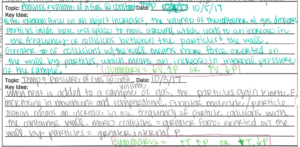 Topic: Pressure & Volume of a Gas @ constant Date: 10/5/17
Key Idea:
external force on an object increases, the volume of the container of gas decreases
particles inside have less space to move around, which leads to an increase in
the frequency of collisions between the particles & the walls.
Greater # of collisions w/ the walls means more force exerted on
the wall by particles, which means an increase in internal pressure
of the sample. Summary = ↓V ↑P or ↑V ↓P
Topic: Temp & Pressure of a Gas @ constant volume Date: 10/5/17
Key Idea:
When heat is added to a sample of gas, the particles gain kinetic E,
increasing in movement and temperature. Greater molecule/particle
motion means an increase in the frequency of particle collisions with
the container walls. more collisions = greater force exerted on the
wall by particles = greater internal P.
Summary = ↑T ↑P or ↓T ↓P